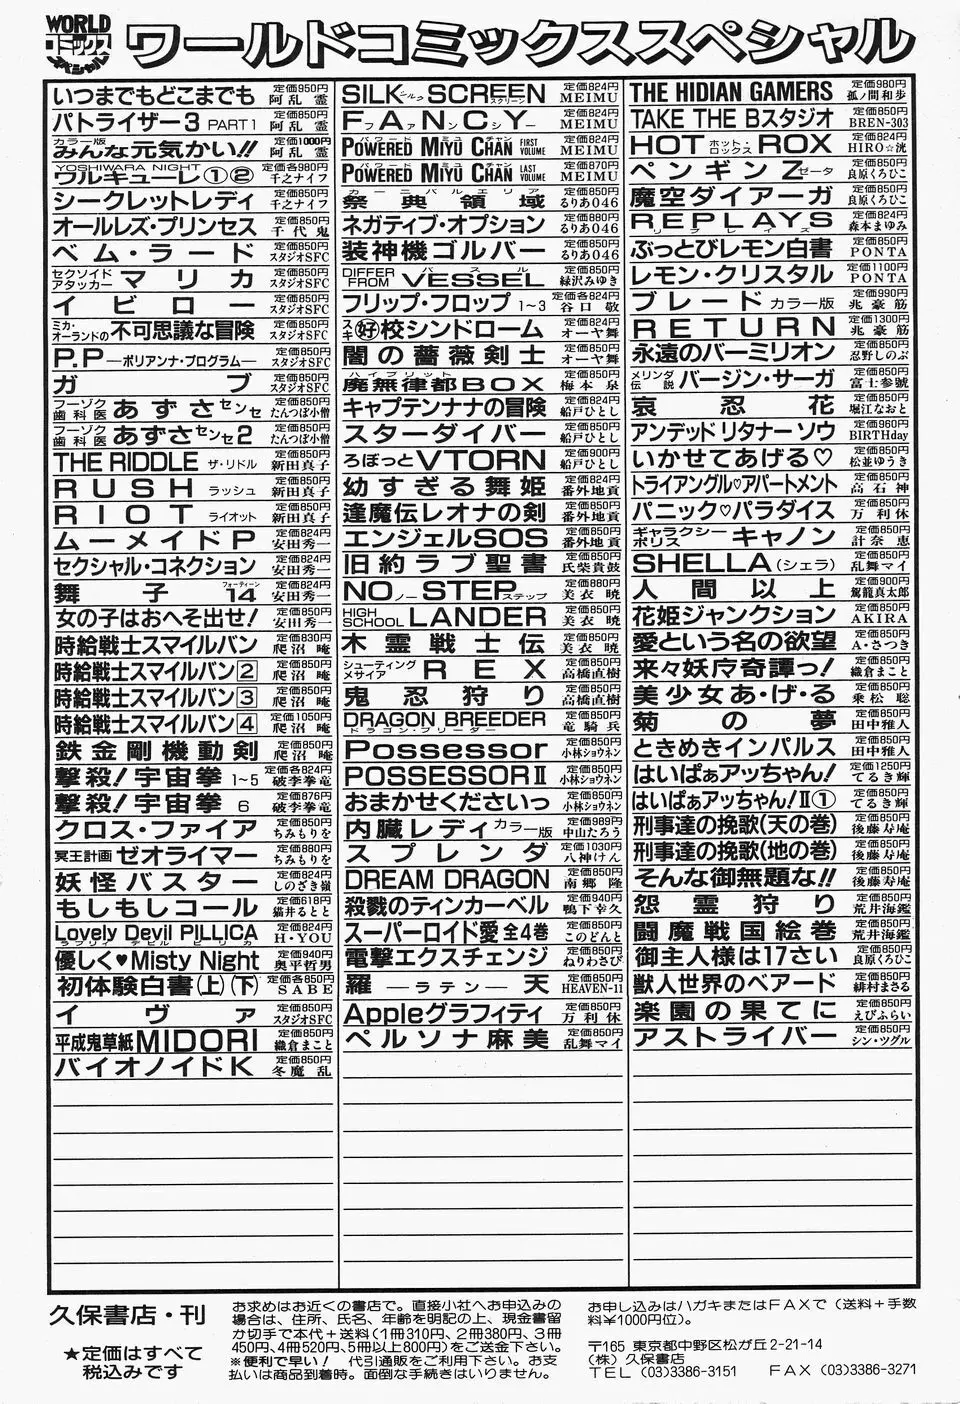 WORLD
コミックス
スペシャル
ワールドコミックススペシャル
いつまでもどこまでも 定価950円 阿乱霊
パトライザー3 PART1 定価850円 阿乱霊
カラー版 みんな元気かい!! 定価1000円 阿乱霊
YOSHIWARA NIGHT ワルキューレ①② 定価各980円 千之ナイフ
シークレットレディ 定価850円 千之ナイフ
オールレズ・プリンセス 定価850円 千代鬼
ベム・ラード 定価850円 スタジオSFC
セクソイドアタッカー マリカ 定価850円 スタジオSFC
イビロー 定価850円 スタジオSFC
ミカ・オーランドの不可思議な冒険 定価850円 スタジオSFC
P.P―ポリアンナ・プログラム― 定価850円 スタジオSFC
ガブ 定価850円 スタジオSFC
フーゾク歯科医 あずさセンセ 定価850円 たんつぼ小僧
フーゾク歯科医 あずさセンセ2 定価850円 たんつぼ小僧
THE RIDDLE ザ・リドル 定価850円 新田真子
RUSH ラッシュ 定価850円 新田真子
RIOT ライオット 定価850円 新田真子
ムーメイドP 定価824円 安田秀一
セクシャル・コネクション 定価824円 安田秀一
舞子14 フォーティーン 定価824円 安田秀一
女の子はおへそ出せ! 定価850円 安田秀一
時給戦士スマイルバン 定価830円 爬沼唵
時給戦士スマイルバン2 定価850円 爬沼唵
時給戦士スマイルバン3 定価850円 爬沼唵
時給戦士スマイルバン4 定価1050円 爬沼唵
鉄金剛機動剣 定価850円 爬沼唵
撃殺!宇宙拳 1~5 定価各824円 破李拳竜
撃殺!宇宙拳 6 定価876円 破李拳竜
クロス・ファイア 定価850円 ちみもりを
冥王計画ゼオライマー 定価880円 ちみもりを
妖怪バスター 定価824円 しのざき嶺
もしもしコール 定価618円 猫井るとと
Lovely Devil PILLICA ラブリイ デビル ピリカ 定価824円 H・YOU
優しく♥Misty Night 定価940円 奥平哲男
初体験白書(上)(下) 定価各850円 SABE
イヴァ 定価850円 スタジオSFC
平成鬼草紙MIDORI 定価850円 織倉まこと
バイオノイドK 定価850円 冬魔乱
SILK シルク SCREEN スクリーン 定価824円 MEIMU
FANCY ファンシー 定価824円 MEIMU
POWERED MIYU CHAN パワード ミュ チャン FIRST VOLUME 定価824円 MEIMU
POWERED MIYU CHAN パワード ミュ チャン LAST VOLUME 定価870円 MEIMU
祭典領域 カーニバルエリア 定価850円 るりあ046
ネガティブ・オプション 定価880円 るりあ046
装神機ゴルバー 定価850円 るりあ046
DIFFER FROM VESSEL バスル 定価850円 緑沢みゆき
フリップ・フロップ 1~3 定価各824円 谷口敬
スキ㊝校シンドローム 定価824円 オーヤ舞
闇の薔薇剣士 定価850円 オーヤ舞
廃無律都BOX ハイブリット 定価850円 梅本泉
キャプテンナナの冒険 定価824円 船戸ひとし
スターダイバー 定価850円 船戸ひとし
ろぼっとVTORN 定価900円 船戸ひとし
幼すぎる舞姫 定価850円 番外地貢
逢魔伝レオナの剣 定価850円 番外地貢
エンジェルSOS 定価850円 番外地貢
旧約ラブ聖書 定価850円 氏柴貴鼓
NO ノー STEP ステップ 定価880円 美衣暁
HIGH SCHOOL LANDER 定価850円 美衣暁
木霊戦士伝 定価850円 美衣暁
シューティングメサイア REX 定価824円 高橋直樹
鬼忍狩り 定価850円 高橋直樹
DRAGON BREEDER ドラゴン・ブリーダー 定価850円 竜騎兵
Possessor 定価850円 小林ショウネン
POSSESSORⅡ 定価850円 小林ショウネン
おまかせくださいっ 定価850円 小林ショウネン
内臓レディ カラー版 定価989円 中山たろう
スプレンダ 定価1030円 八神けん
DREAM DRAGON 定価850円 南郷隆
殺戮のティンカーベル 定価940円 鴨下幸久
スーパーロイド愛 全4巻 定価各850円 このどんと
電撃エクスチェンジ 定価850円 ねりわさび
羅―ラテン―天 定価850円 HEAVEN-11
Appleグラフィティ 定価850円 万利休
ペルソナ麻美 定価850円 乱舞マイ
THE HIDIAN GAMERS 定価980円 孤ノ間和歩
TAKE THE Bスタジオ 定価850円 BREN-303
HOT ROX ホットロックス 定価824円 HIRO☆洸
ペンギンZ ゼータ 定価850円 良原くろひこ
魔空ダイアーガ 定価850円 良原くろひこ
REPLAYS リプレイズ 定価824円 森本まゆみ
ぶっとびレモン白書 定価850円 PONTA
レモン・クリスタル 定価1100円 PONTA
ブレード カラー版 定価990円 兆豪筋
RETURN 定価1300円 兆豪筋
永遠のバーミリオン 定価850円 忍野しのぶ
メリンダ伝説 バージン・サーガ 定価850円 富士参號
哀忍花 定価850円 堀江なおと
アンデッドリタナーソウ 定価960円 BIRTHday
いかせてあげる♡ 定価850円 松並ゆうき
トライアングル♡アパートメント 定価850円 高石神
パニック♡パラダイス 定価850円 万利休
ギャラクシーポリス キャノン 定価850円 計奈恵
SHELLA(シェラ) 定価850円 乱舞マイ
人間以上 定価900円 駕籠真太郎
花姫ジャンクション 定価850円 AKIRA
愛という名の欲望 定価850円 A・さつき
来々妖庁奇譚っ! 定価850円 織倉まこと
美少女あ・げ・る 定価850円 乗松聡
菊の夢 定価850円 田中雅人
ときめきインパルス 定価850円 田中雅人
はいぱぁアッちゃん! 定価1250円 てるき輝
はいぱぁアッちゃん!Ⅱ① 定価850円 てるき輝
刑事達の挽歌(天の巻) 定価850円 後藤寿庵
刑事達の挽歌(地の巻) 定価850円 後藤寿庵
そんな御無題な!! 定価850円 後藤寿庵
怨霊狩り 定価850円 荒井海鑑
闘魔戦国絵巻 定価850円 荒井海鑑
御主人様は17さい 定価850円 良原くろひこ
獣人世界のベアード 定価850円 緋村まさる
楽園の果てに 定価850円 えびふらい
アストライバー 定価850円 シン・ツグル
久保書店・刊
★定価はすべて
税込みです
お求めはお近くの書店で。直接小社へお申込みの
場合は、住所、氏名、年齢を明記の上、現金書留
か切手で本代+送料(1冊310円、2冊380円、3冊
450円、4冊520円、5冊以上800円)をご送金下さい。
※便利で早い! 代引通販をご利用下さい。お支
払いは商品到着時。面倒な手続きはいりません。
お申し込みはハガキまたはFAXで(送料+手数
料¥1000円位)。
〒165 東京都中野区松が丘2-21-14
(株)久保書店
TEL (03)3386-3151 FAX (03)3386-3271